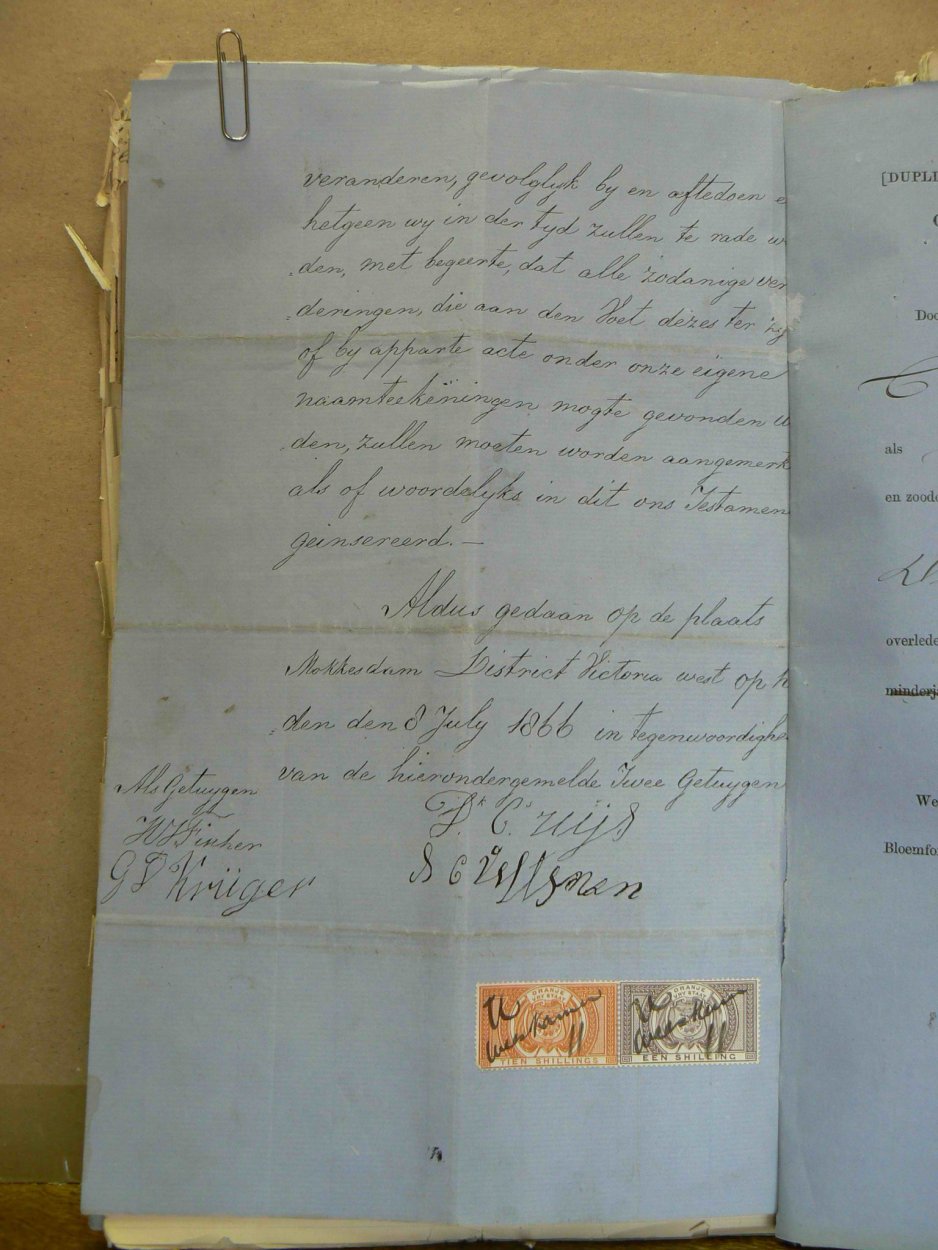 veranderen, gevolglyk by en aftedoen e
hetgeen wy in der tyd zullen te rade w
den, met begeerte, dat alle zodanige ver
deringen, die aan den Voet dezes ter zy
of by apparte acte onder onze eigene
naamteekeningen mogte gevonden w
den, zullen moeten worden aangemerk
als of woordelyks in dit ons Testamen
geinsereerd. —
Aldus gedaan op de plaats
Mokkesdam District Victoria west op h
den den 8 July 1866 in tegenwoordighe
van de hierondergemelde Twee Getuygen
Als Getuygen
G D Krüger
ORANJE
VRY STAAT
TIEN SHILLINGS
ORANJE
VRY STAAT
EEN SHILLING
[DUPLI
Doo
als
en zoode
overlede
minderj
We
Bloemfo